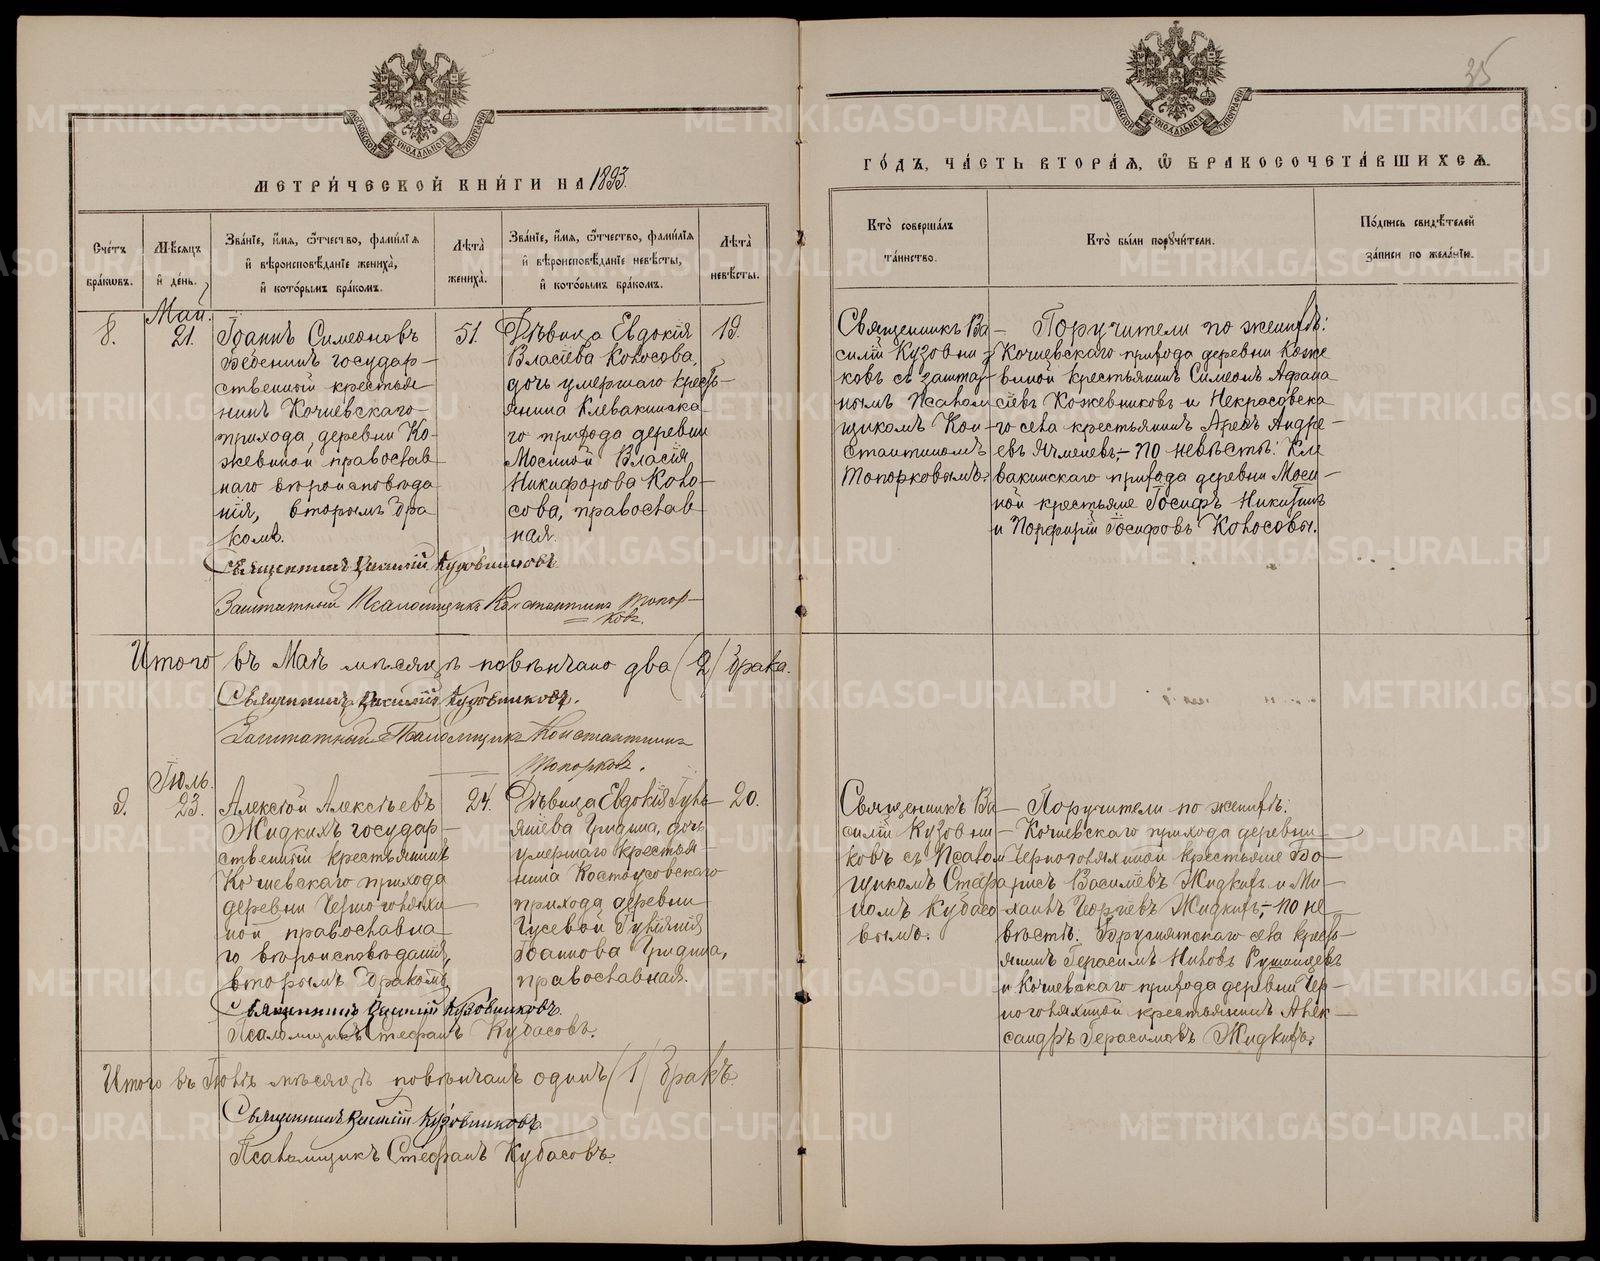 35
МЕТРИ́ЧЕСКОЙ КНИ́ГИ НА 1893.
Сче́тъ бра́кωвъ.
Мѣ́сяцъ и҆ де́нь.
Зва́нїе, и҆́мя, ѻ҆́тчество, фами́лїя и҆ вѣроисповѣ́данїе жениха̀, и҆ кото́рымъ бра́комъ.
Лѣта̀ жениха̀.
Зва́нїе, и҆́мя, ѻ҆́тчество, фами́лїя и҆ вѣроисповѣ́данїе невѣ́сты, и҆ кото́рымъ бра́комъ.
Лѣта̀ невѣ́сты.
8.
Май.
21.
Іоаннъ Симеоновъ
государ-
ственный крестья-
нинъ Кочневскаго
прихода, деревни Ко-
жевиной православ-
наго вѣроисповѣда
нія, вторымъ бра
комъ.
51.
Дѣвица Евдокія
Власіева Колосова,
дочь умершаго кресть-
янина Клевакинска-
го прихода деревни
Мосиной Власія
Никифорова Коло-
сова, православ
ная.
19.
Священникъ Василій Кузовниковъ
Заштатный Псаломщикъ Константинъ Топор-
ковъ.
Итого въ Маѣ мѣсяцѣ повѣнчано два (2) брака.
Священникъ Василій Кузовниковъ.
Заштатный Псаломщикъ Константинъ
Топорковъ.
9.
Іюль.
23.
Алексѣй Алексѣевъ
Жидкихъ государ-
ственный крестьянинъ
Кочневскаго прихода
деревни Черноголяхи-
ной православна-
го вѣроисповѣданія,
вторымъ бракомъ
24.
Дѣвица Евдокія
Гридина, дочь
умершаго крестья-
нина Костоусовскаго
прихода деревни
Гусевой
Іоаннова Гридина,
православная.
20.
Священникъ Василій Кузовниковъ.
Псаломщикъ Стефанъ Кубасовъ.
Итого въ Іюлѣ мѣсяцѣ повѣнчанъ одинъ (1) бракъ.
Священникъ Василій Кузовниковъ
Псаломщикъ Стефанъ Кубасовъ.
ГО́ДЪ, ЧА́СТЬ ВТОРА́Я, Ѽ БРАКОСОЧЕТА́ВШИХСЯ.
Кто̀ соверша́лъ та́инство.
Кто̀ бы́ли порꙋчи́тели.
По́дпись свидѣ́телей за́писи по жела́нїю.
Священникъ Ва-
силій Кузовни
ковъ съ заштат-
нымъ Псалом
щикомъ Кон-
стантиномъ
Топорковымъ.
Поручители по женихѣ:
Кочневскаго прихода деревни Коже
виной крестьянинъ Симеонъ Афана
сіевъ Кожевниковъ и Некрасовска
го села крестьянинъ Андре-
евъ Ячменевъ,- по невѣстѣ: Кле
вакинскаго прихода деревни Моси-
ной крестьяне Іосифъ Никитинъ
и Порфирій Іосифовъ Колосовы.
Священникъ Ва-
силій Кузовни-
ковъ съ Псалом
щикомъ Стефа
номъ Кубасо
вымъ.
Поручители по женихѣ:
Кочневскаго прихода деревни
Черноголяхиной крестьяне Бо-
рисъ Василіевъ Жидкихъ и Ми-
хаилъ Георгіевъ Жидкихъ,- по не
вѣстѣ: села кресть-
янинъ Герасимъ Румянцевъ
и Кочневскаго прихода деревни Чер-
ноголяхиной крестьянинъ Алек-
сандръ Герасимовъ Жидкихъ.
METRIKI.GASO-URAL.RU